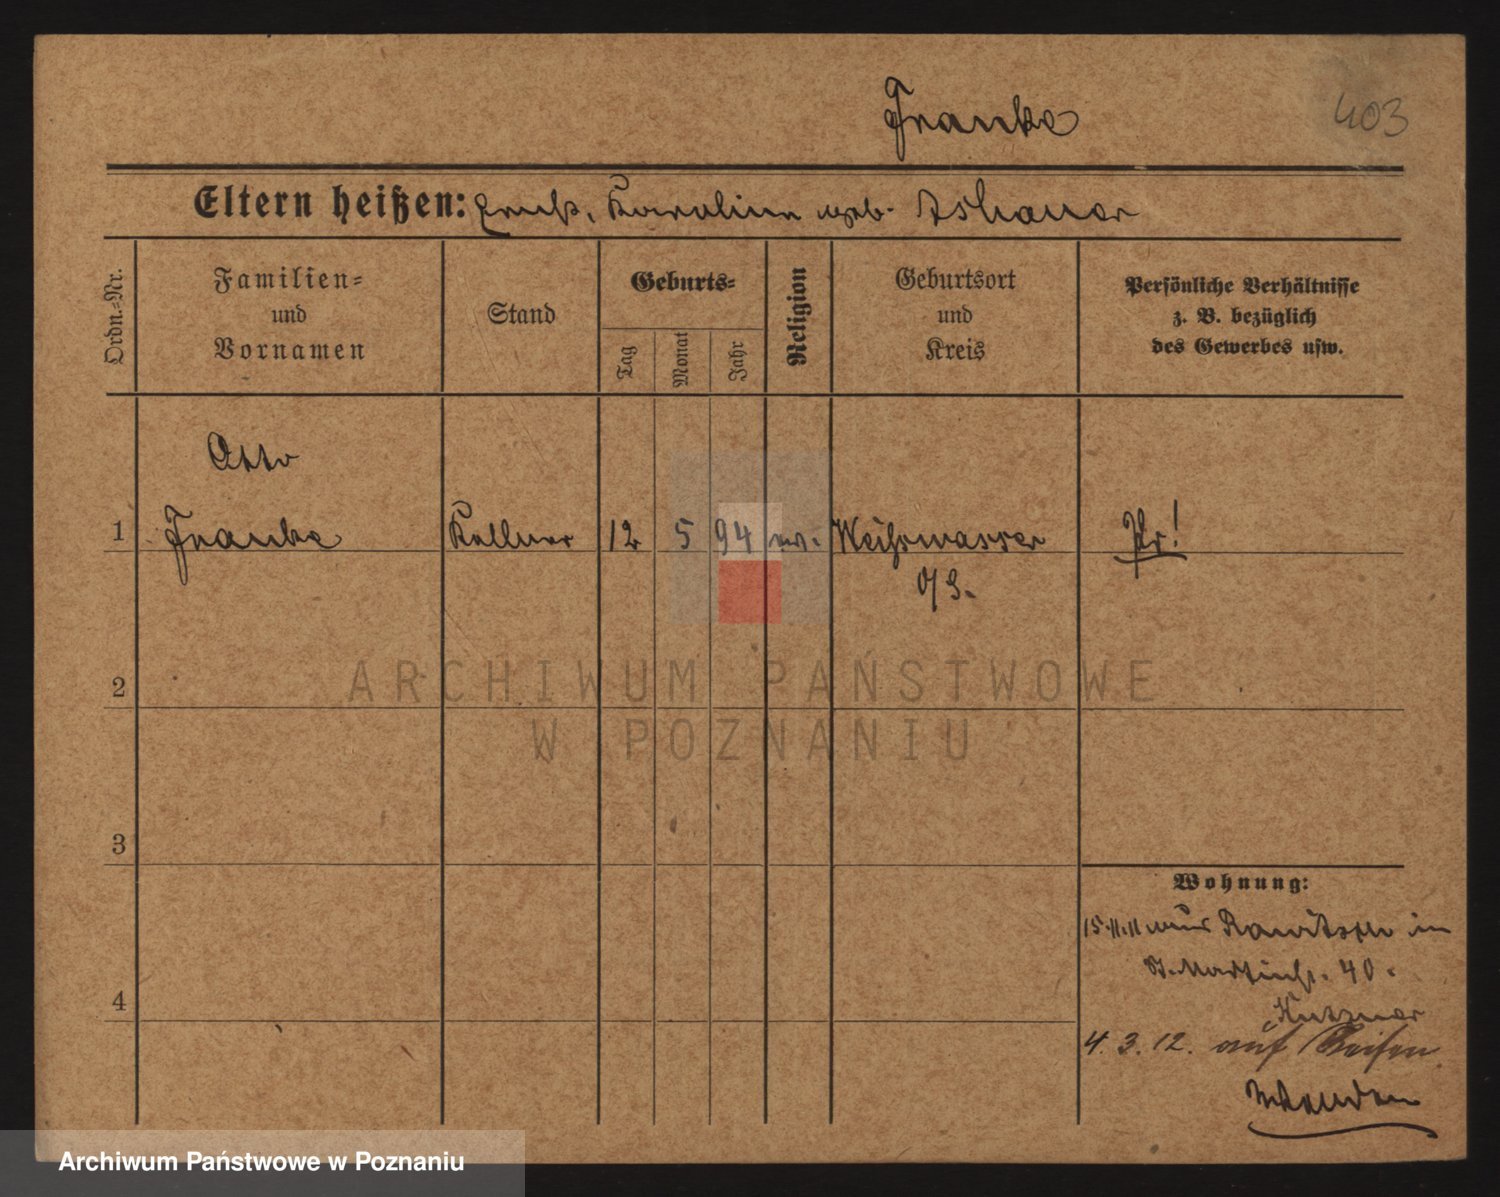 Franke
403
Eltern heißen: Ernst, Karoline geb. Tschauer
Ordn.-Nr.
Familien-
und
Vornamen
Stand
Geburts-
Tag
Monat
Jahr
Religion
Geburtsort
und
Kreis
Persönliche Verhältnisse
z. B. bezüglich
des Gewerbes usw.
Otto
1 Franke Kellner 12 5 94 ev. Weisswasser Pr!
O/S.
2
3
4
Wohnung:
15.11.11 aus Rawitsch in
St. Martinstr. 40.
Kutzner
4. 3. 12. auf Reisen
ARCHIWUM PAŃSTWOWE
W POZNANIU
Archiwum Państwowe w Poznaniu